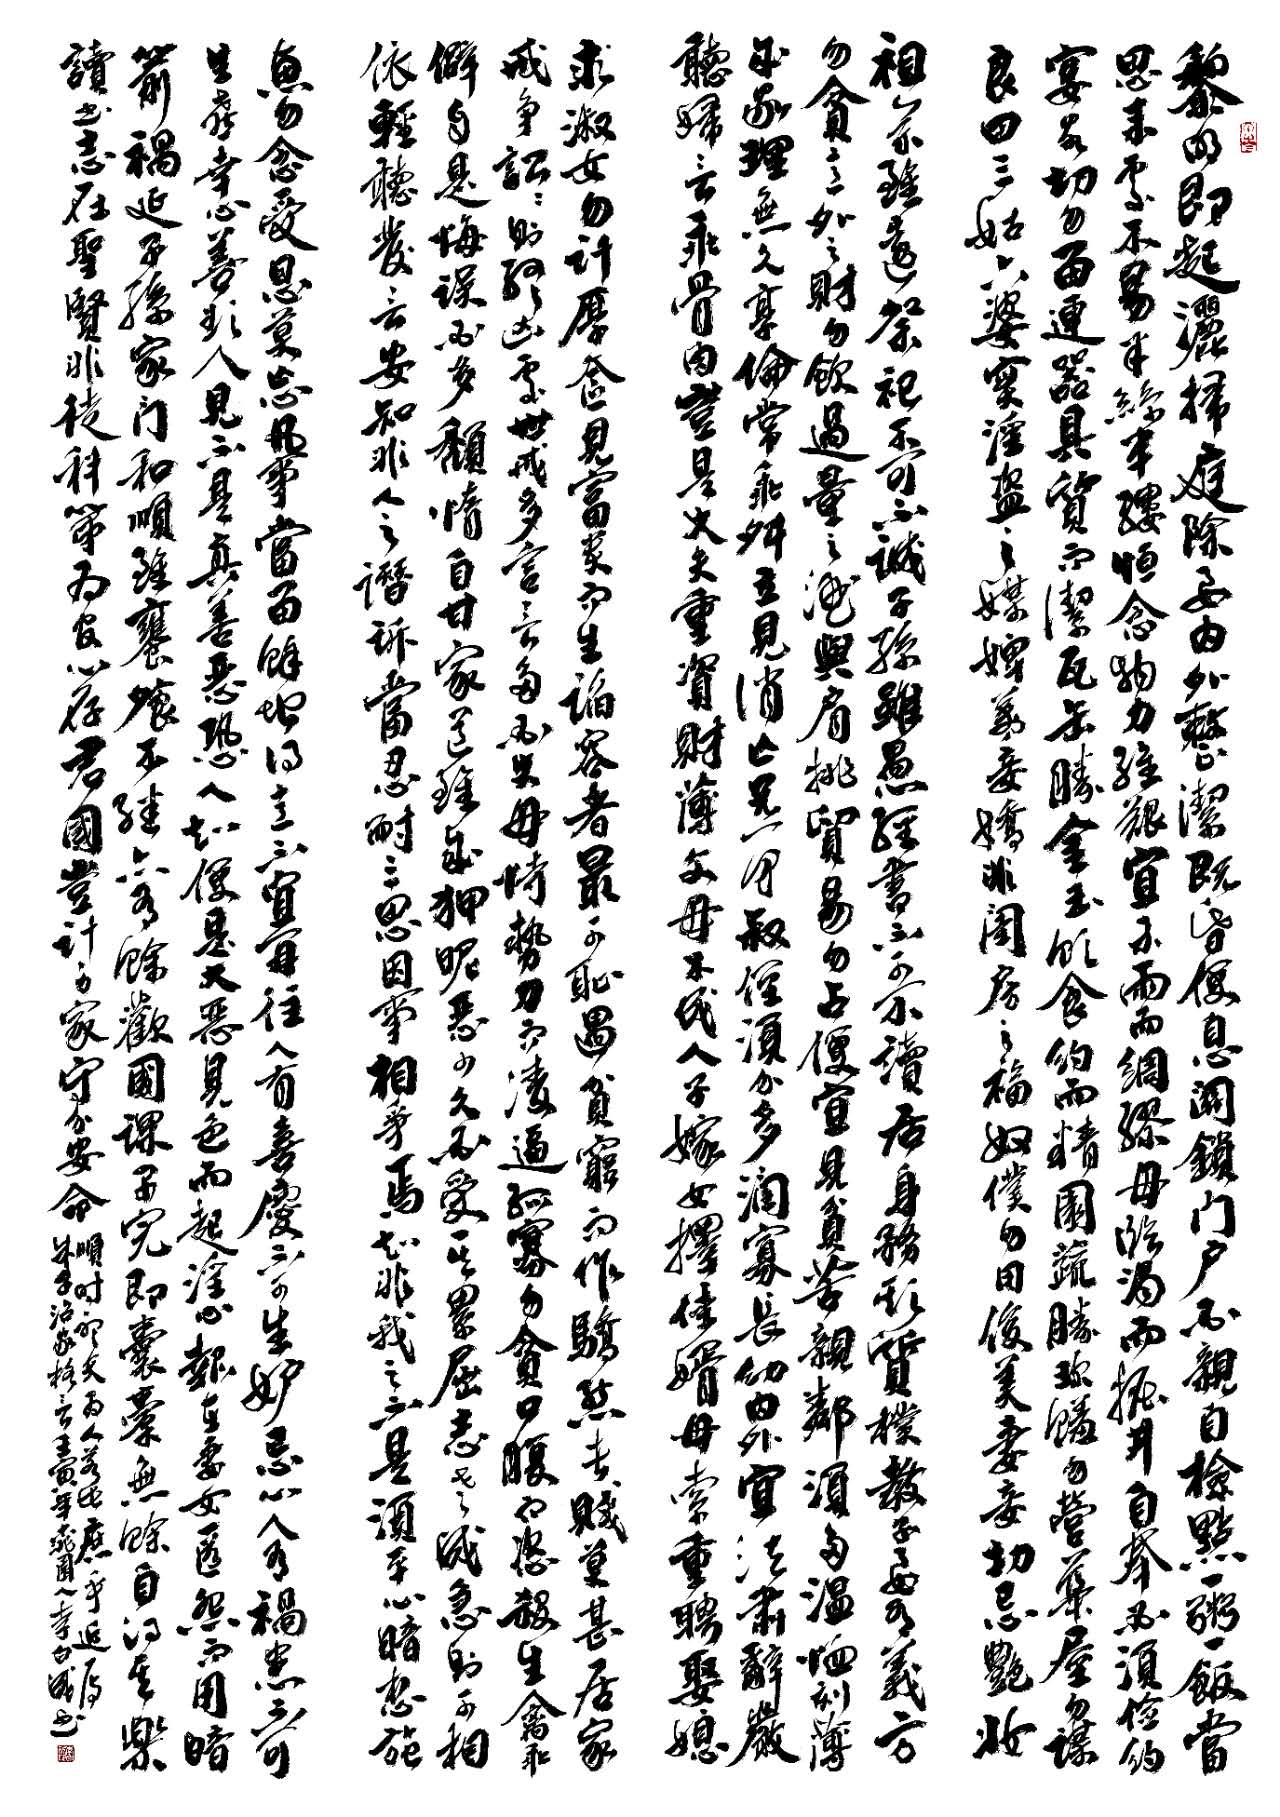 黎明即起灑掃庭除要内外整潔既昏便息關鎖门户必親自檢點一粥一飯當
思来處不易半絲半縷恒念物力維艱宜未雨而綢繆毋臨渴而掘井自奉必須儉約
宴客切勿留連器具質而潔瓦缶勝金玉飲食約而精園蔬勝珍饈勿營華屋勿謀
良田三姑六婆實淫盗之媒婢美妾嬌非闺房之福奴僕勿用俊美妻妾切忌艷妆
祖宗雖遠祭祀不可不誠子孫雖愚經書不可不讀居身務期質樸教子要有義方
勿貪意外之財勿飲過量之酒與肩挑貿易勿占便宜見貧苦親鄰須多温恤刻薄
成家理無久享倫常乖舛立見消亡兄弟叔侄須分多潤寡長幼内外宜法肅辭嚴
聽婦言乖骨肉豈是丈夫重資財薄父母不成人子嫁女擇佳婿毋索重聘娶媳
求淑女勿計厚奩見富貴而生諂容者最可恥遇貧窮而作驕態者賤莫甚居家
戒争訟訟則終凶處世戒多言言多必失毋恃勢力而凌逼孤寡勿貪口腹而恣殺生禽乖
僻自是悔误必多頹惰自甘家道難成狎昵惡少久必受其累屈志老成急則可相
依輕聽發言安知非人之譖訴當忍耐三思因事相争焉知非我之不是須平心暗想施
惠勿念受恩莫忘凡事當留餘地得意不宜再往人有喜慶不可生妒忌心人有禍患不可
生喜幸心善欲人見不是真善惡恐人知便是大惡見色而起淫心報在妻女匿怨而用暗
箭禍延子孫家门和順雖饔飧不繼亦有餘歡國課早完即囊橐無餘自得至樂
讀书志在聖賢非徒科第为官心存君國豈計身家守分安命順时聽天为人若此庶乎近焉
朱子治家格言